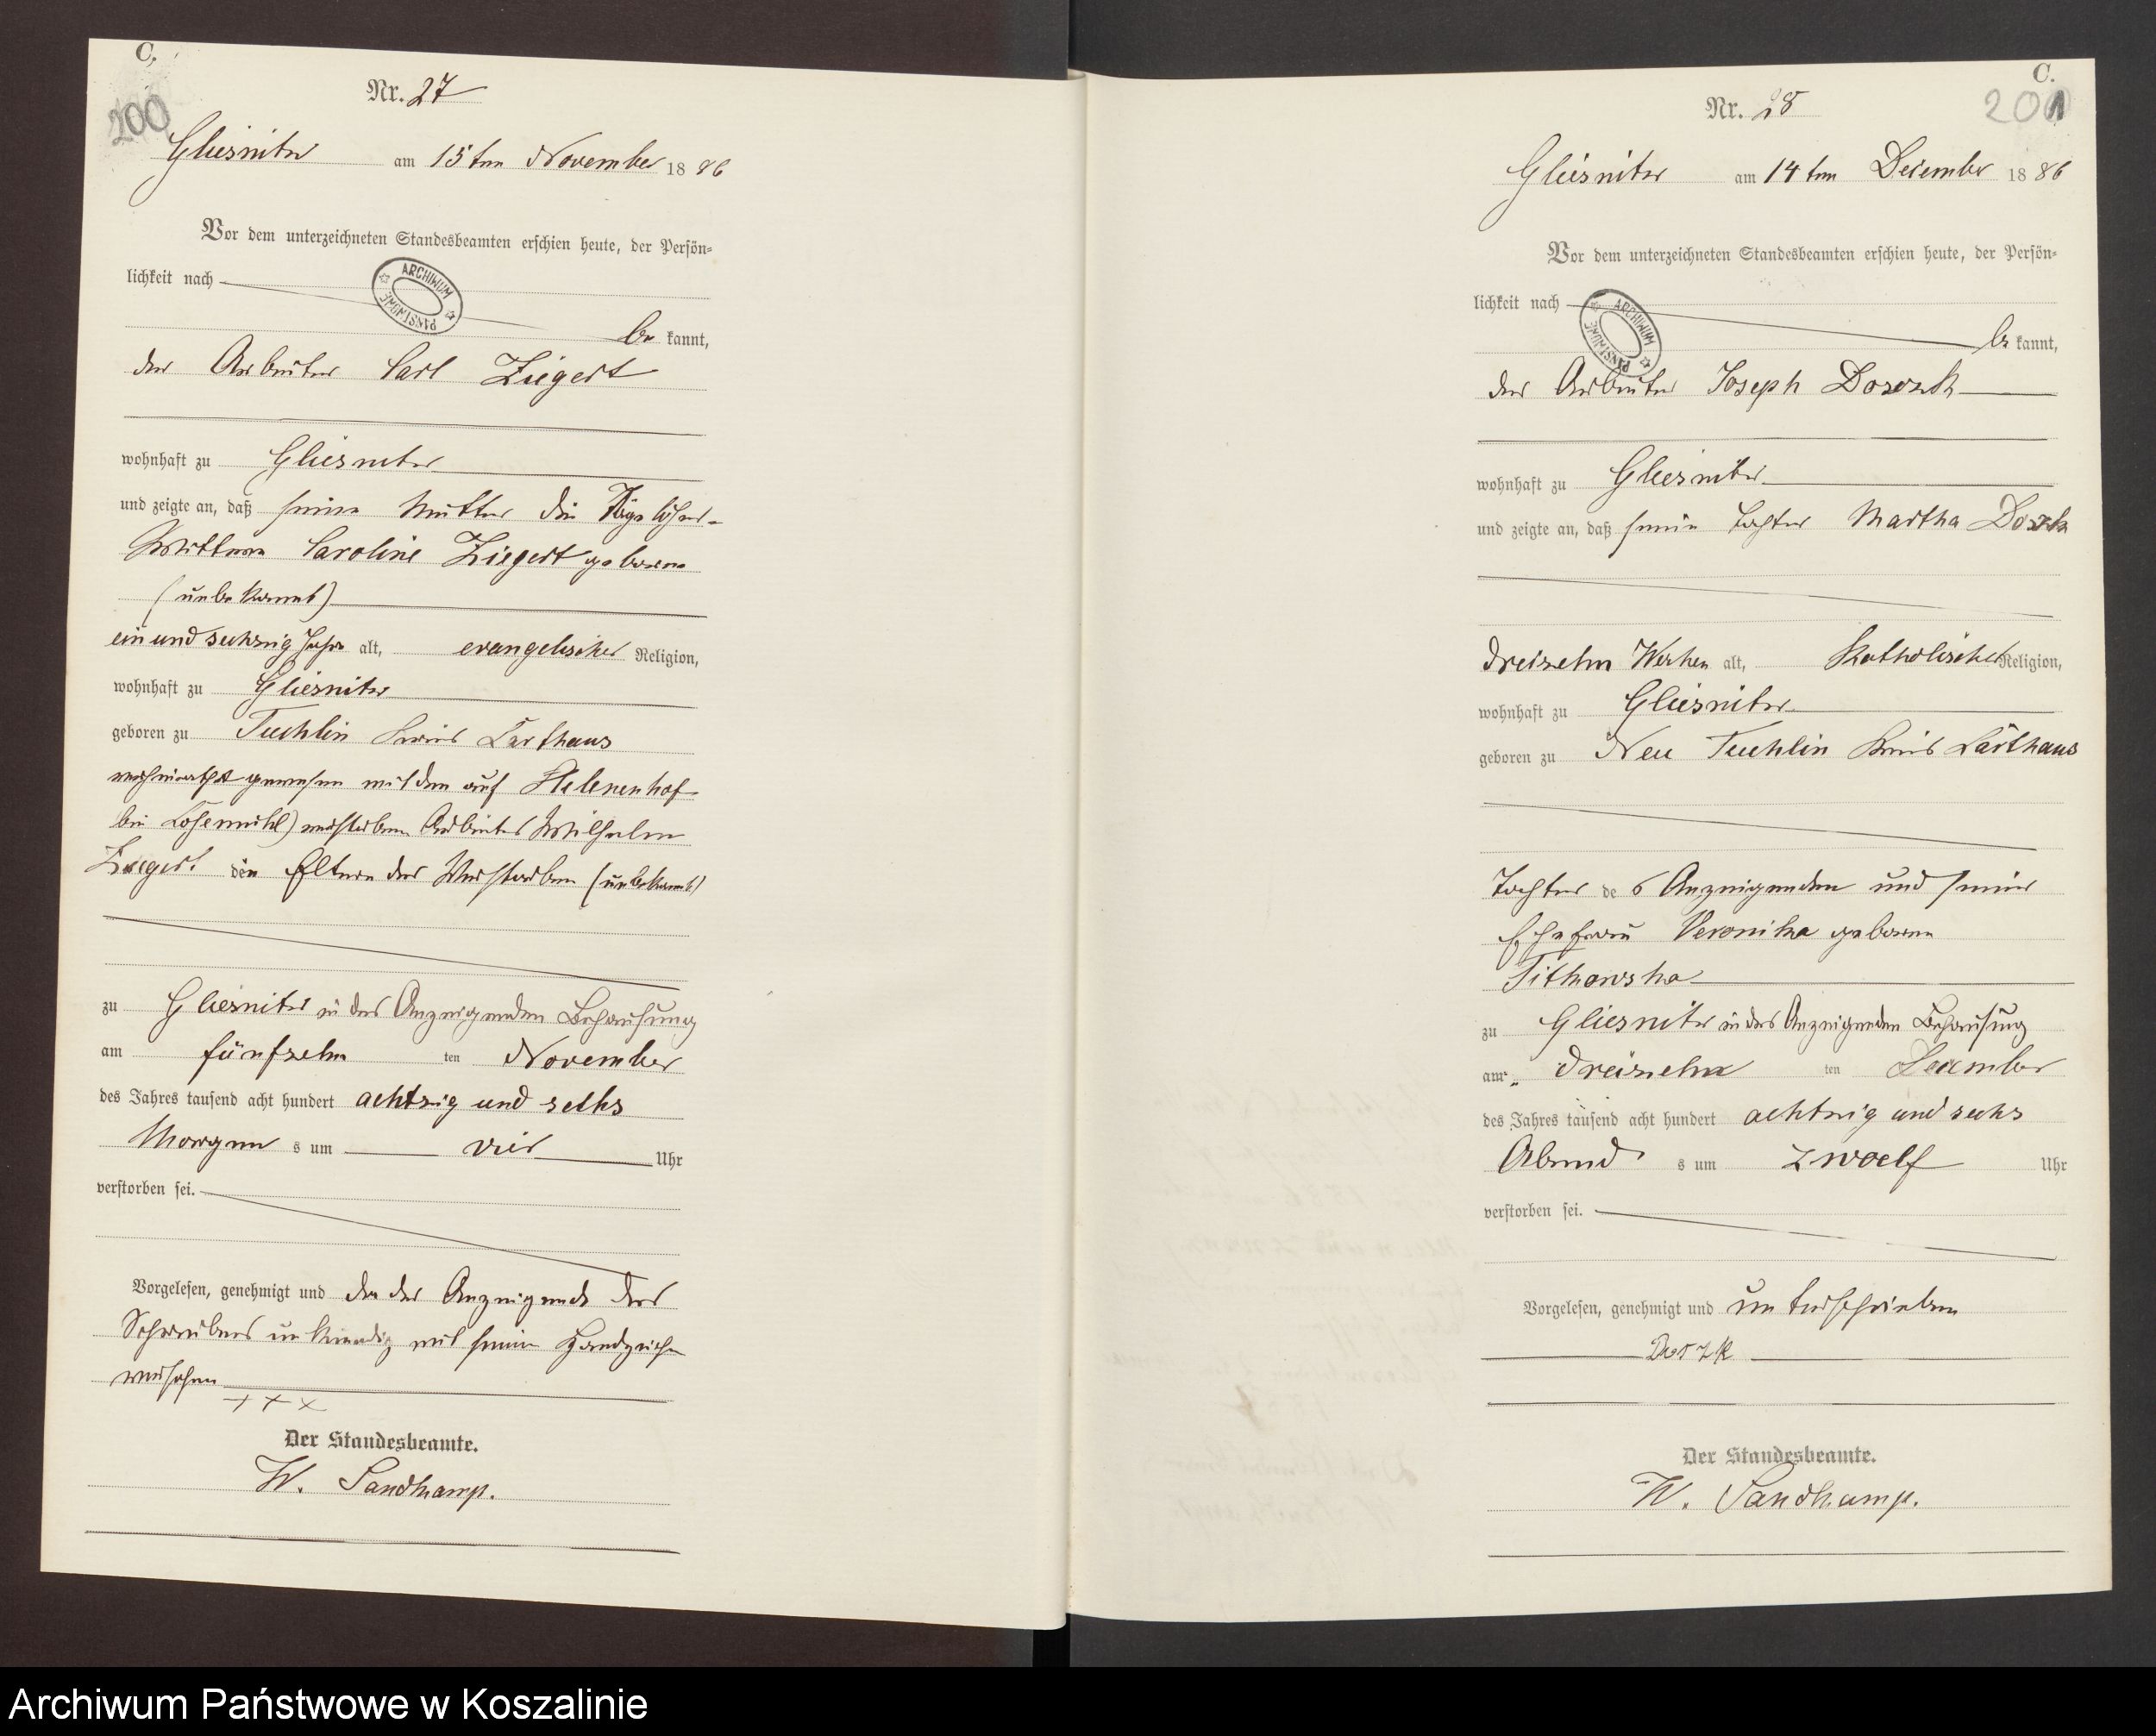 C.
200
Nr. 27
Gliesnitz am 15ten November 1886
Vor dem unterzeichneten Standesbeamten erschien heute, der Persön-
lichkeit nach
ARCHIWUM PAŃSTWOWE
be kannt,
der Arbeiter Carl Ziegert
wohnhaft zu Gliesnitz
und zeigte an, daß seine Mutter die Tagelöhner-
Wittwe Caroline Ziegert geborene
(unbekannt)
ein und sechzig Jahre alt, evangelischer Religion,
wohnhaft zu Gliesnitz
geboren zu Tuchlin Kreis Carthaus
verheirathet gewesen mit dem auf Helenenhof
bei verstorbenen Arbeiter Wilhelm
Ziegert die Eltern der Verstorben (unbekannt)
zu Gliesnitz in des Anzeigenden Behausung
am fünfzehn ten November
des Jahres tausend acht hundert achtzig und sechs
Morgen s um vier Uhr
verstorben sei.
Vorgelesen, genehmigt und da der Anzeigende des
Schreibens unkundig mit seinem Handzeichen
versehen
+ + x
Der Standesbeamte.
W. Sandkamp.
C.
201
Nr. 28
Gliesnitz am 14ten Dezember 1886
Vor dem unterzeichneten Standesbeamten erschien heute, der Persön-
lichkeit nach
ARCHIWUM PAŃSTWOWE
be kannt,
der Arbeiter Joseph
wohnhaft zu Gliesnitz
und zeigte an, daß seine Tochter Martha
dreizehn Wochen alt, Katholischer Religion,
wohnhaft zu Gliesnitz
geboren zu Neu Tuchlin Kreis Carthaus
Tochter de s Anzeigenden und seiner
Ehefrau Veronika geborene
zu Gliesnitz in des Anzeigenden Behausung
am dreizehn ten Dezember
des Jahres tausend acht hundert achtzig und sechs
Abend s um zwoelf Uhr
verstorben sei.
Vorgelesen, genehmigt und unterschrieben
Der Standesbeamte.
W. Sandkamp.
Archiwum Państwowe w Koszalinie